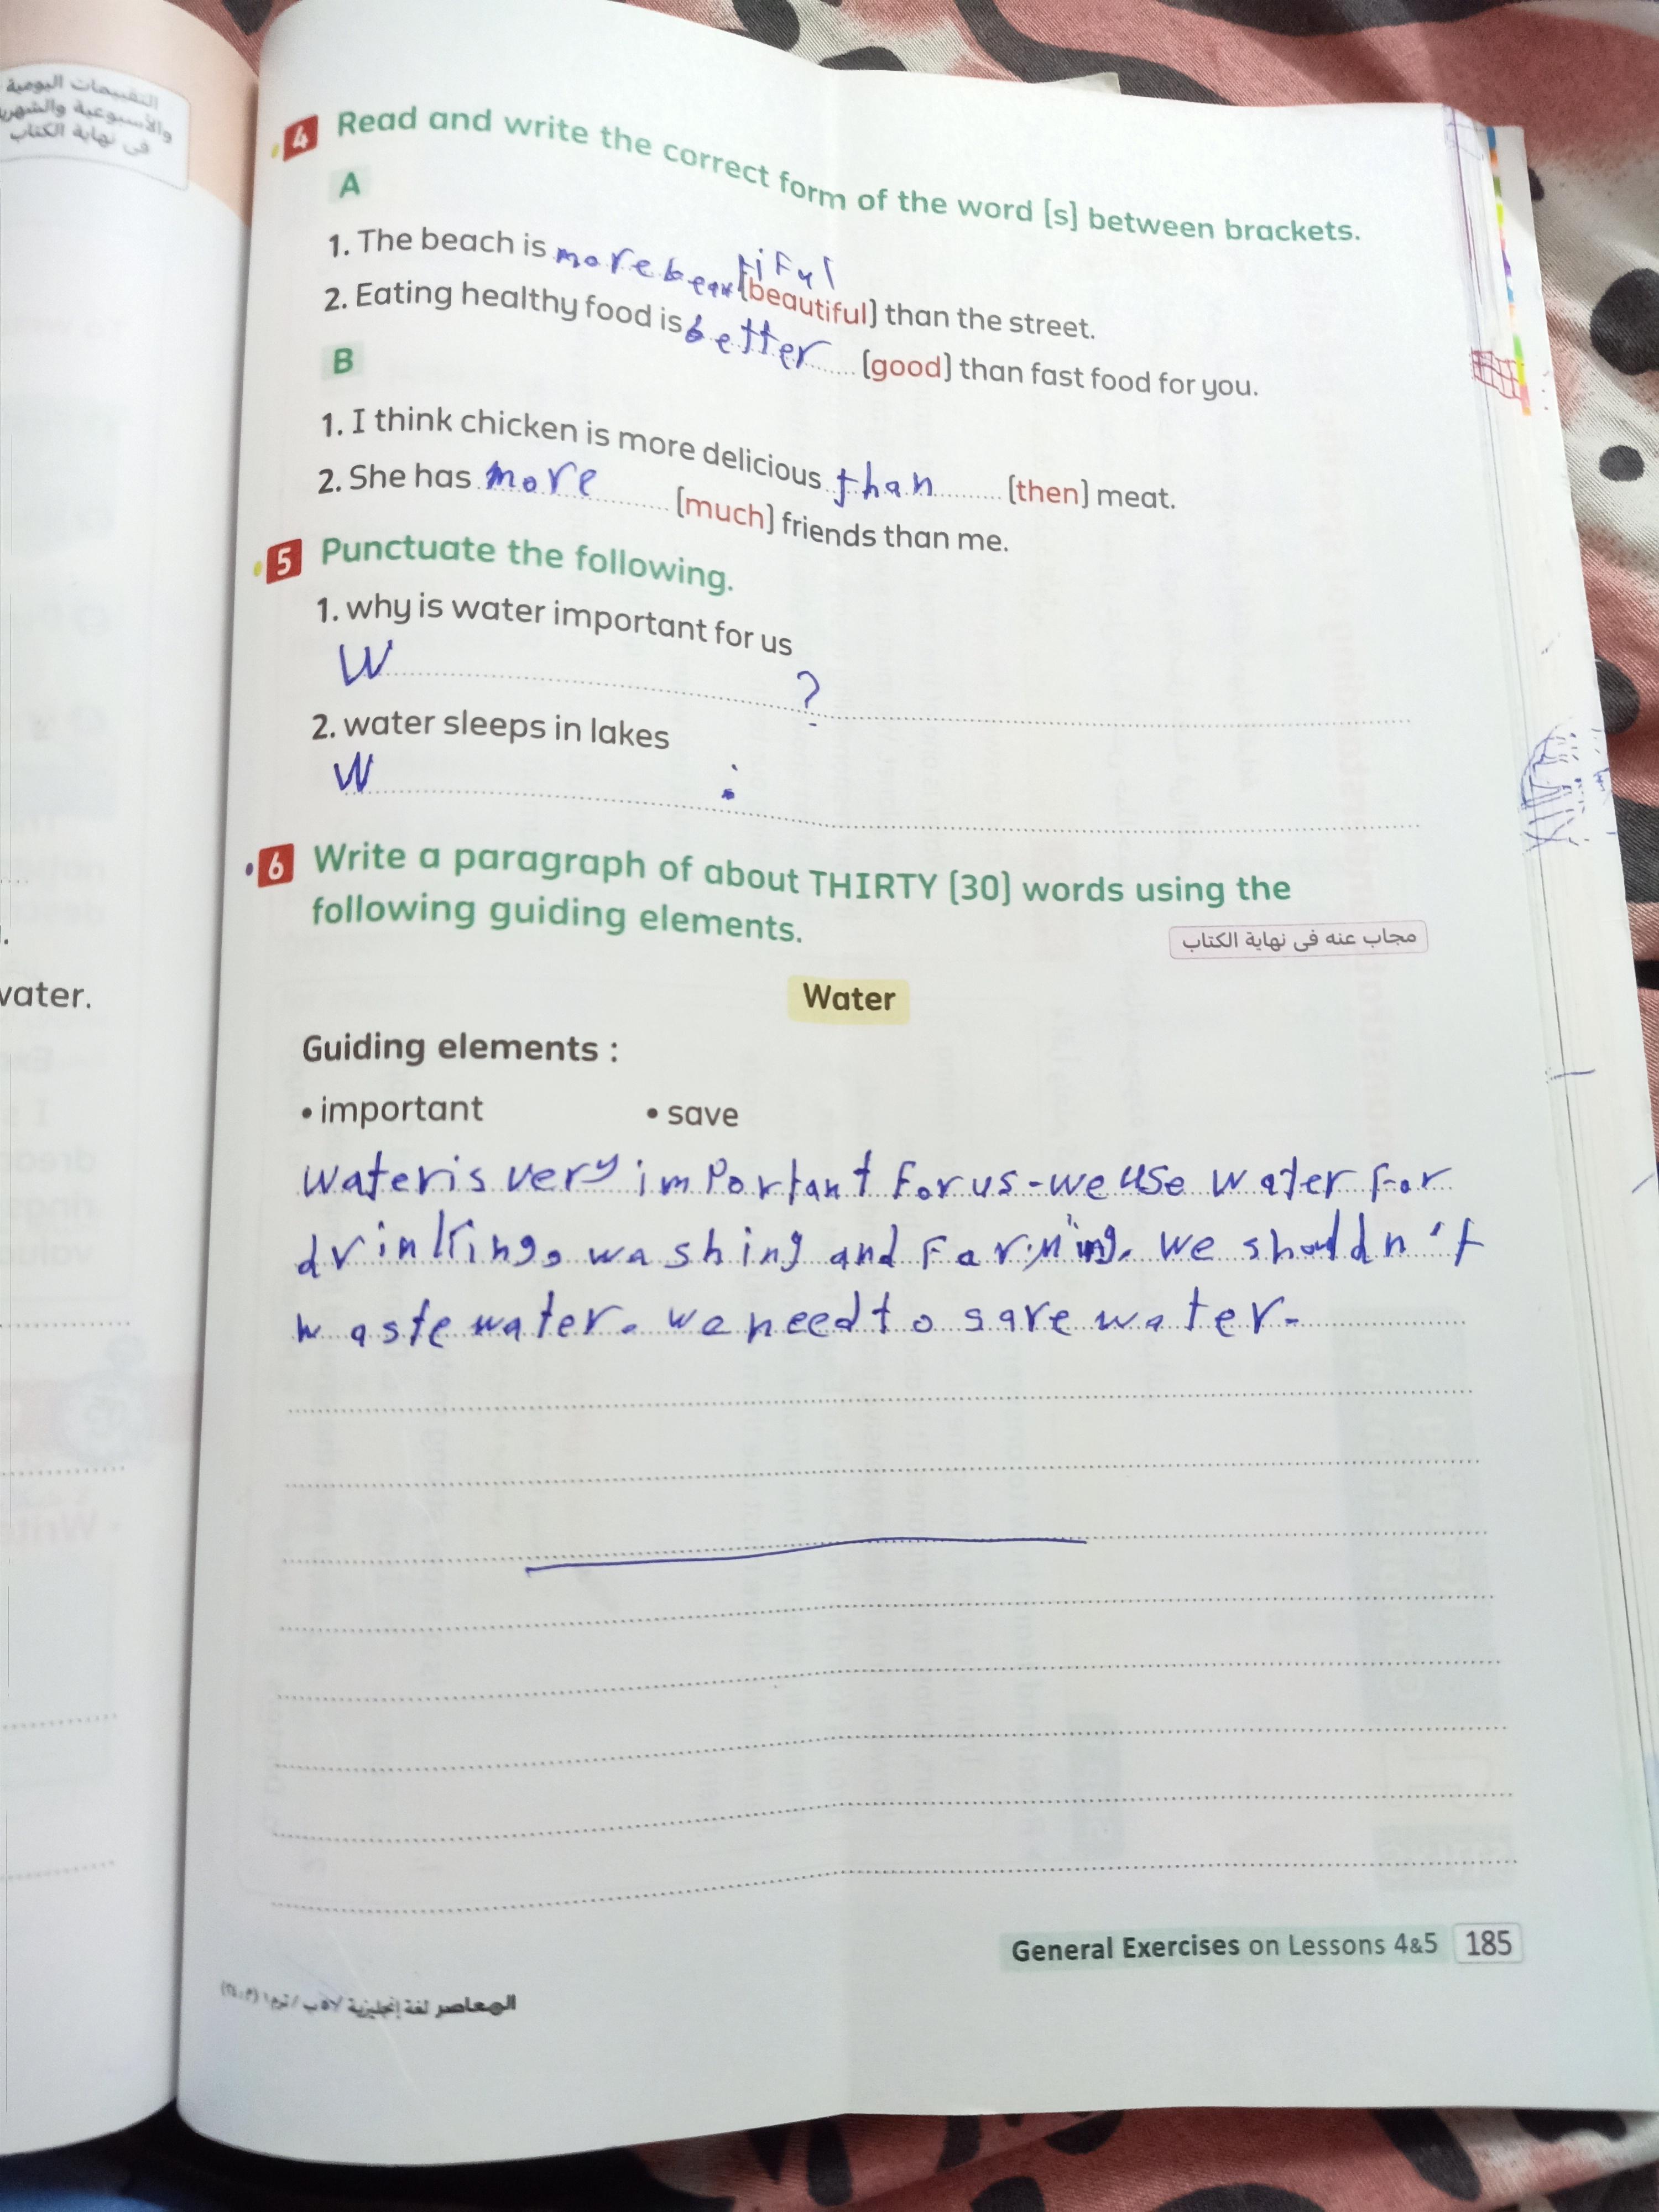 التقييمات اليومية
والأسبوعية والشهرية
فى نهاية الكتاب
4 Read and write the correct form of the word [s] between brackets.
A
1. The beach is more beautiful [beautiful] than the street.
2. Eating healthy food is better [good] than fast food for you.
B
1. I think chicken is more delicious than [then] meat.
2. She has more [much] friends than me.
5 Punctuate the following.
1. why is water important for us
W ?
2. water sleeps in lakes
W .
6 Write a paragraph of about THIRTY [30] words using the
following guiding elements.
مجاب عنه فى نهاية الكتاب
Water
Guiding elements :
• important • save
water is very important For us - we use water for
drinking, washing and Farming. we shouldn't
waste water. we need to save water.
General Exercises on Lessons 4&5 185
المعاصر لغة إنجليزية
vater.